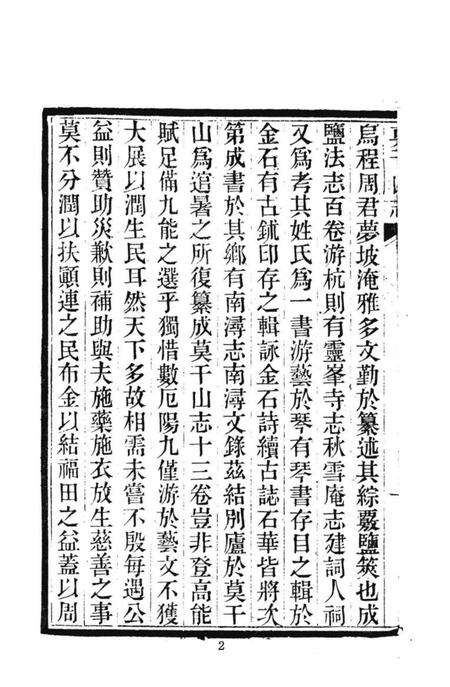 烏程周君夢坡淹雅多文勤於纂述其綜覈鹽筴也成
鹽法志百卷游杭則有靈峯寺志秋雪庵志建詞人祠
又爲考其姓氏爲一書游藝於琴有琴書存目之輯於
金石有古鉥印存之輯詠金石詩續古誌石華皆將次
第成書於其鄉有南潯志南潯文錄茲結別廬於莫干
山爲逭暑之所復纂成莫干山志十三卷豈非登高能
賦足備九能之選乎獨惜數厄陽九僅游於藝文不獲
大展以潤生民耳然天下多故相需未嘗不殷每遇公
益則贊助災歉則補助與夫施藥施衣放生慈善之事
莫不分潤以扶顚連之民布金以結福田之益蓋以周
2